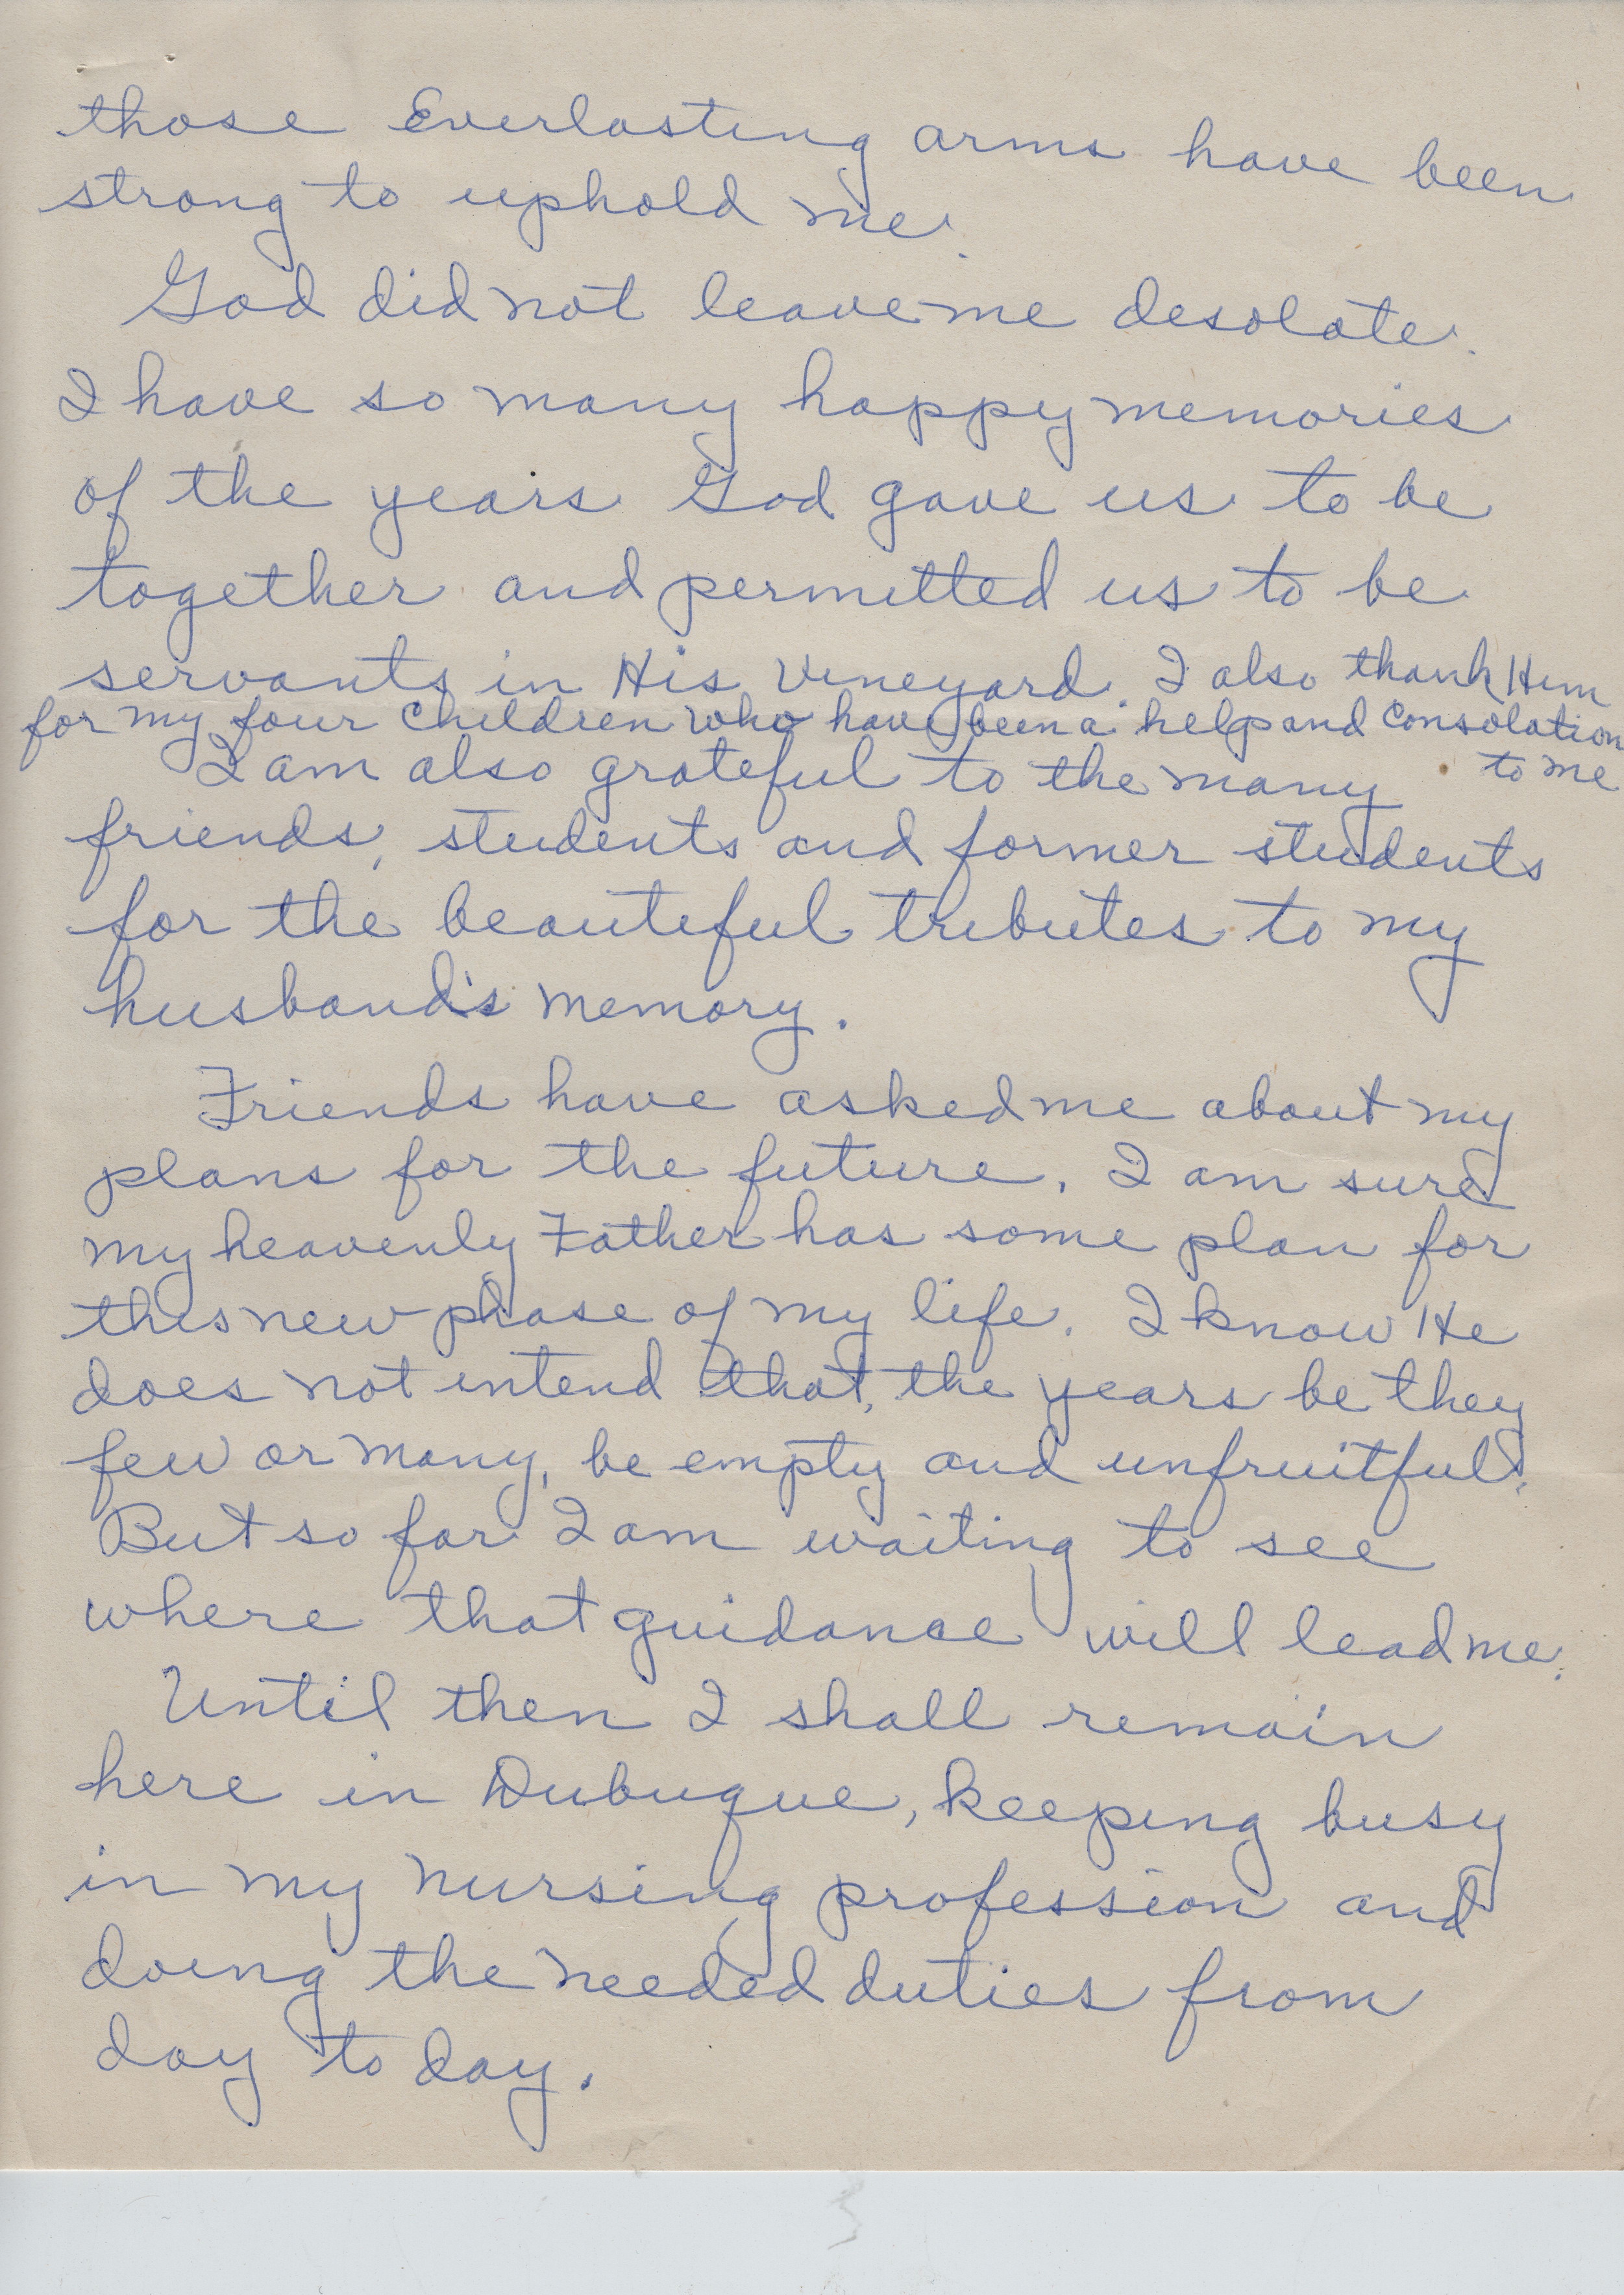 those Everlasting arms have been
strong to uphold me.
God did not leave me desolate.
I have so many happy memories
of the years God gave us to be
together and permitted us to be
servants in His Vineyard. I also thank Him
for my four children who have been a help and consolation
to me
I am also grateful to the many
friends, students and former students
for the beautiful tributes to my
husband's memory.
Friends have asked me about my
plans for the future. I am sure
my heavenly Father has some plan for
this new phase of my life. I know He
does not intend that, the years be they
few or many, be empty and unfruitful.
But so far I am waiting to see
where that guidance will lead me.
Until then I shall remain
here in Dubuque, keeping busy
in my nursing profession and
doing the needed duties from
day to day.